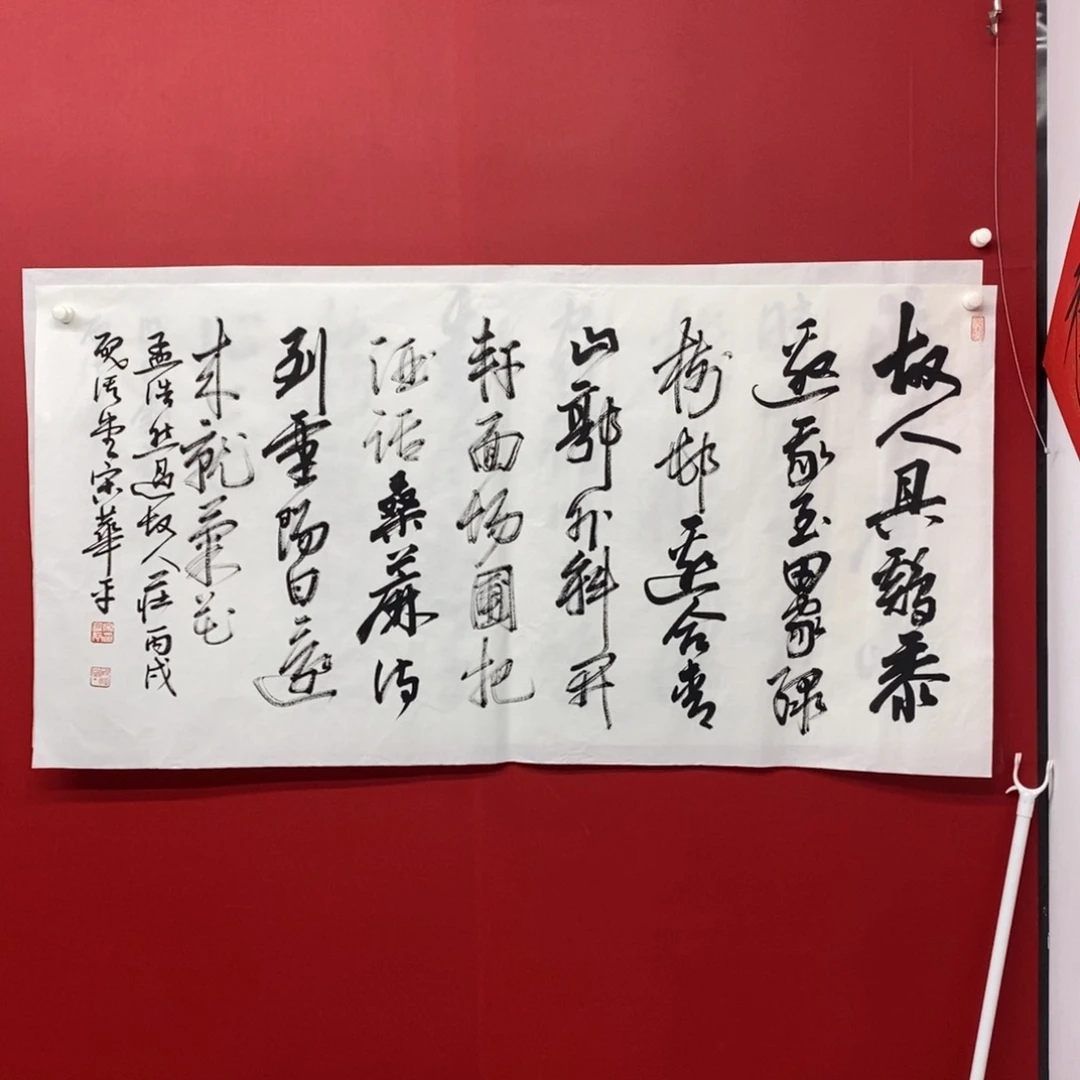 故人具鷄黍
邀我至田家綠
樹邨邊合青
山郭外斜開
軒面場圃把
酒話桑麻待
到重陽日還
来就菊花
孟浩然過故人莊丙戌
堂宋華平